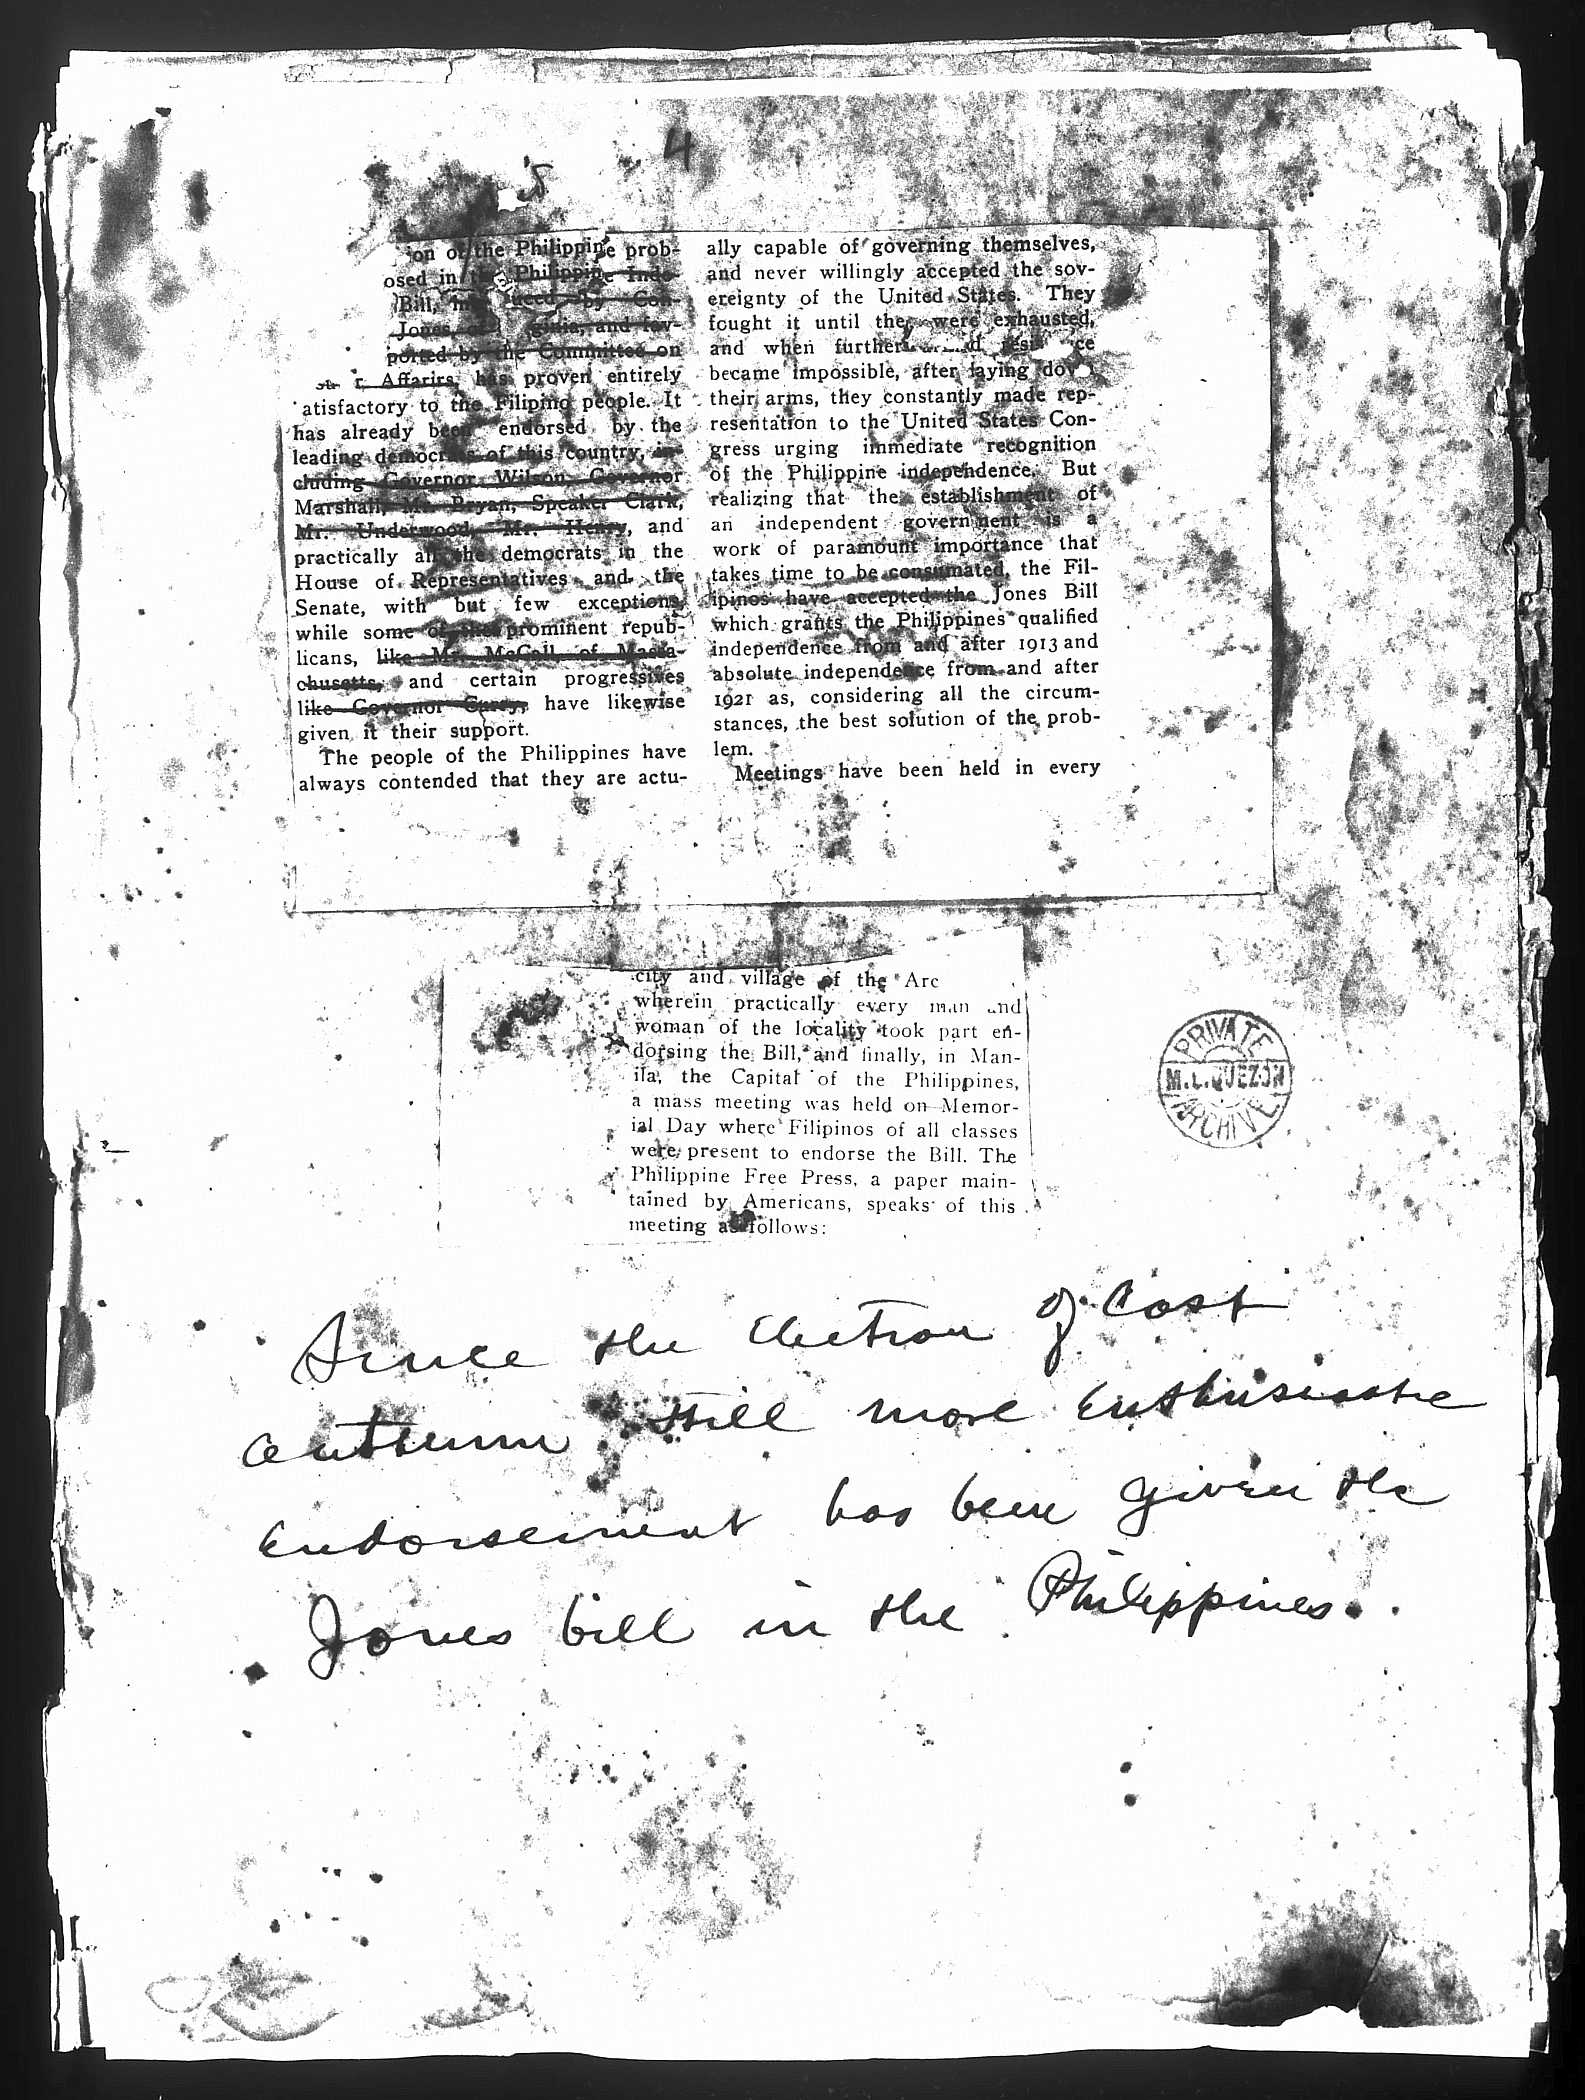 4
5
ion of the Philippine prob-
osed in the Philippine Inde-
Bill, by Con-
Jones of and fav-
ported by the Committee on
r Affarirs, has proven entirely
atisfactory to the Filipino people. It
has already been endorsed by the
leading democrats of this country, in-
cluding Governor Wilson, Governor
Marshall, Mr. Bryan, Speaker Clark,
Mr. Underwood, Mr. Henry, and
practically all the democrats in the
House of Representatives and the
Senate, with but few exceptions,
while some of the prominent repub-
licans, like Mr. McCall of Massa-
chusetts, and certain progressives
like Governor Curry, have likewise
given it their support.
The people of the Philippines have
always contended that they are actu-
ally capable of governing themselves,
and never willingly accepted the sov-
ereignty of the United States. They
fought it until they were exhausted,
and when further
became impossible, after laying down
their arms, they constantly made rep-
resentation to the United States Con-
gress urging immediate recognition
of the Philippine independence. But
realizing that the establishment of
an independent government is a
work of paramount importance that
takes time to be consumated, the Fil-
ipinos have accepted the Jones Bill
which grants the Philippines qualified
independence from and after 1913 and
absolute independence from and after
1921 as, considering all the circum-
stances, the best solution of the prob-
lem.
Meetings have been held in every
city and village of the Arc
wherein practically every man and
woman of the locality took part en-
dorsing the Bill, and finally, in Man-
ila, the Capital of the Philippines,
a mass meeting was held on Memor-
ial Day where Filipinos of all classes
were present to endorse the Bill. The
Philippine Free Press, a paper main-
tained by Americans, speaks of this
meeting as follows:
PRIVATE
M.L.QUEZON
ARCHIVE
Since the Election of last
autumn still more enthusiastic
endorsement has been given the
Jones bill in the Philippines.